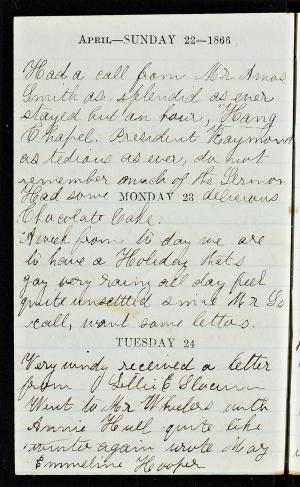 APRIL—SUNDAY 22—1866
Had a call from Mr Amos
Smith as splendid as ever
stayed but an hour, Hang
Chapel. President Raymond
as tedious as ever, do not
remember much of the Sermon
Had some MONDAY 23 delicious
Chocolate Cake.
A week from to day we are
to have a Holiday thats
gay very rainy all day feel
quite unsettled since Mr S's
call, want some letters.
TUESDAY 24
Very windy received a letter
from Lillie E Slocum
Went to Mr Wheelers with
Annie Hull quite like
winter again wrote May
Emmeline Hooper